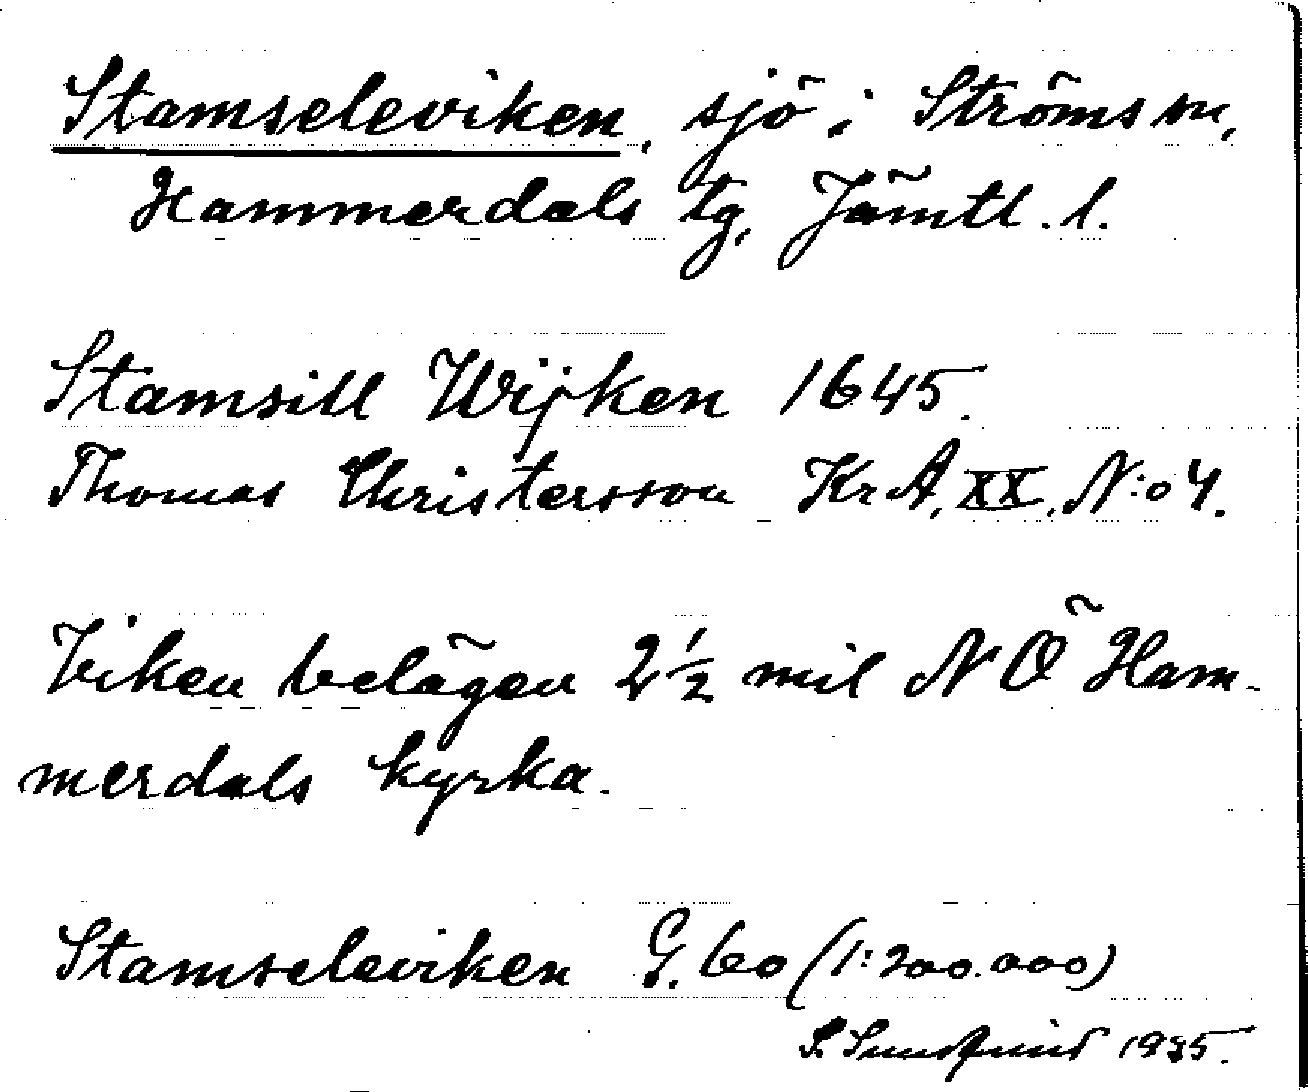 Stamseleviken, sjö i Ströms sn,
Hammerdals tg, Jämtl. l.
Stamsill Wijken 1645.
Thomas Christersson KrA, XX, N:o 4.
Viken belägen 2 1/2 mil NÖ Ham-
merdals kyrka.
Stamseleviken G. 60 (1:200.000)
1935.